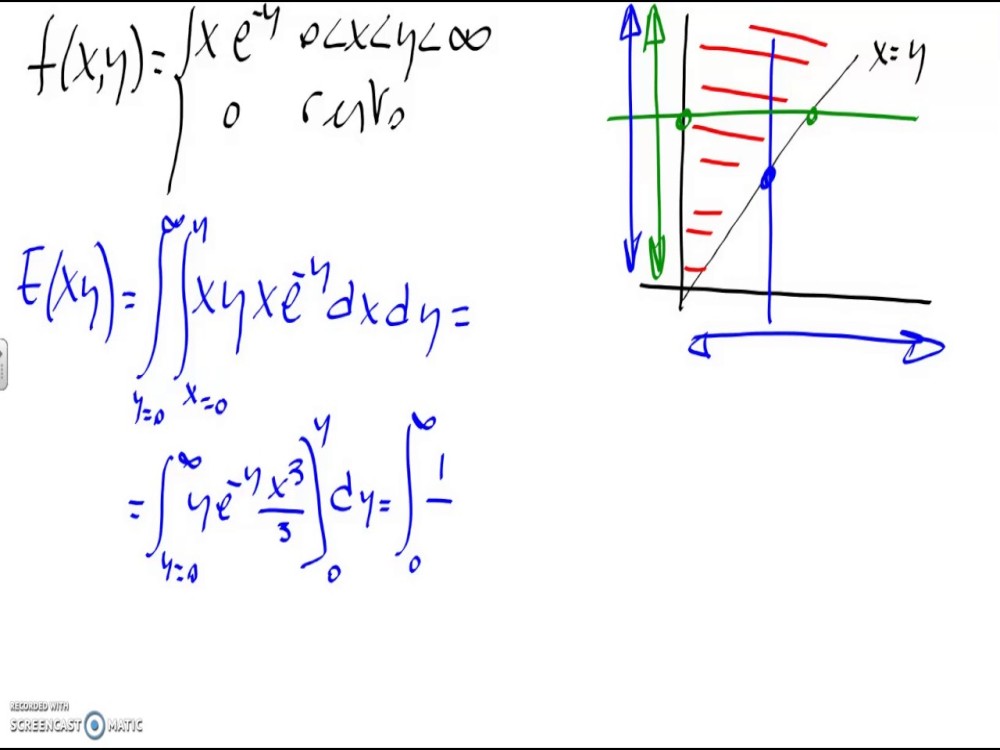 f(x,y)= { x e^{-y} 0<x<y<∞
0 resto
x=y
E(xy)= ∫_{y=0}^{∞} ∫_{x=0}^{y} xy x e^{-y} dx dy =
= ∫_{y=0}^{∞} y e^{-y} x^3/3 ]_0^y dy = ∫_0^∞ 1/
RECORDED WITH
SCREENCAST MATIC